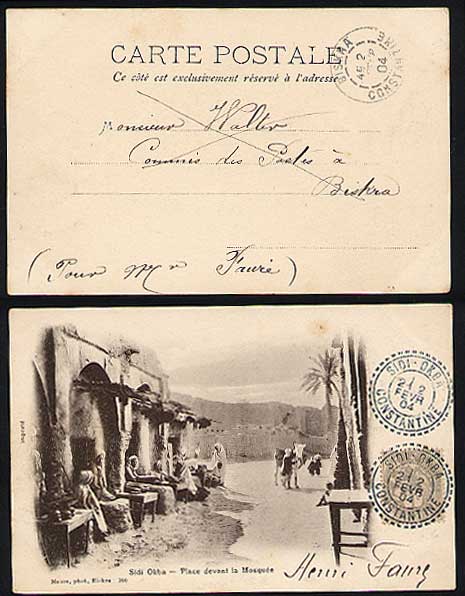 CARTE POSTALE
Ce côté est exclusivement réservé à l'adresse
BISKRA
2
FEVR
04
CONSTANTINE
Monsieur Walter
Commis des Postes à
Biskra
(Pour Mr Fauré)
SIDI-OKBA
2
FEVR
04
CONSTANTINE
SIDI-OKBA
2
FEVR
04
CONSTANTINE
Sidi Okba — Place devant la Mosquée
Maure, phot, Biskra
Henri Fauré